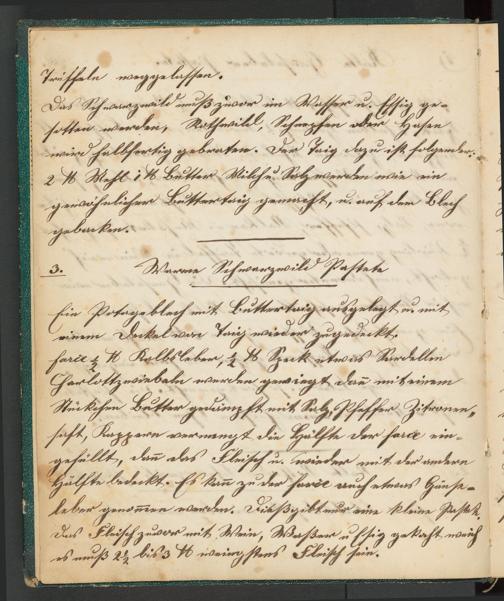 Trüffeln weggelassen.
Das Schwarzwild muß zuvor in Wasser u. Essig ge-
sotten werden, Rothwild, Schnepfen oder Hasen
wird halbfertig gebraten. Der Taig dazu ist folgender:
2 ℔ Mehl 1 ℔ Butter Milch u. Salz werden wie ein
gewöhnlicher Buttertaig gemacht, u. auf dem Blech
gebacken.
3. Warme Schwarzwild Pastete
Ein Potageblech mit Buttertaig ausgelegt u. mit
einem Deckel von Taig wieder zugedeckt.
farce ½ ℔ Kalbsleber, ½ ℔ Speck etwas Sardellen
Charlottzwiebeln werden gewiegt dañ mit einem
Stückchen Butter gedämpft mit Salz, Pfeffer Zitronen-
saft, Kappern vermengt die Hälfte der farce ein-
gefüllt, dañ das Fleisch u. wieder mit der andern
Hälfte bedeckt. Es kañ zu der farce auch etwas Gänse-
leber genom̃en werden. Dieß gibt nur eine kleine Pastete
Das Fleisch zuvor mit Wein, Waßer u Essig gekocht weich
es muß 2½ bis 3 ℔ wenigstens Fleisch sein.